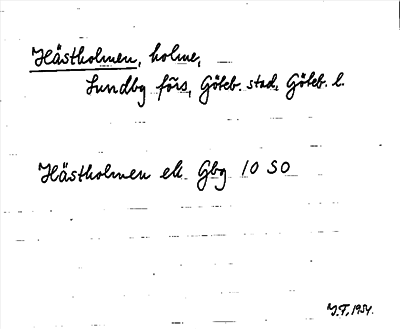 Hästholmen, holme,
Lundby förs, Göteb. stad, Göteb. l.
Hästholmen ek Gbg 10 SO
J.T. 1954.